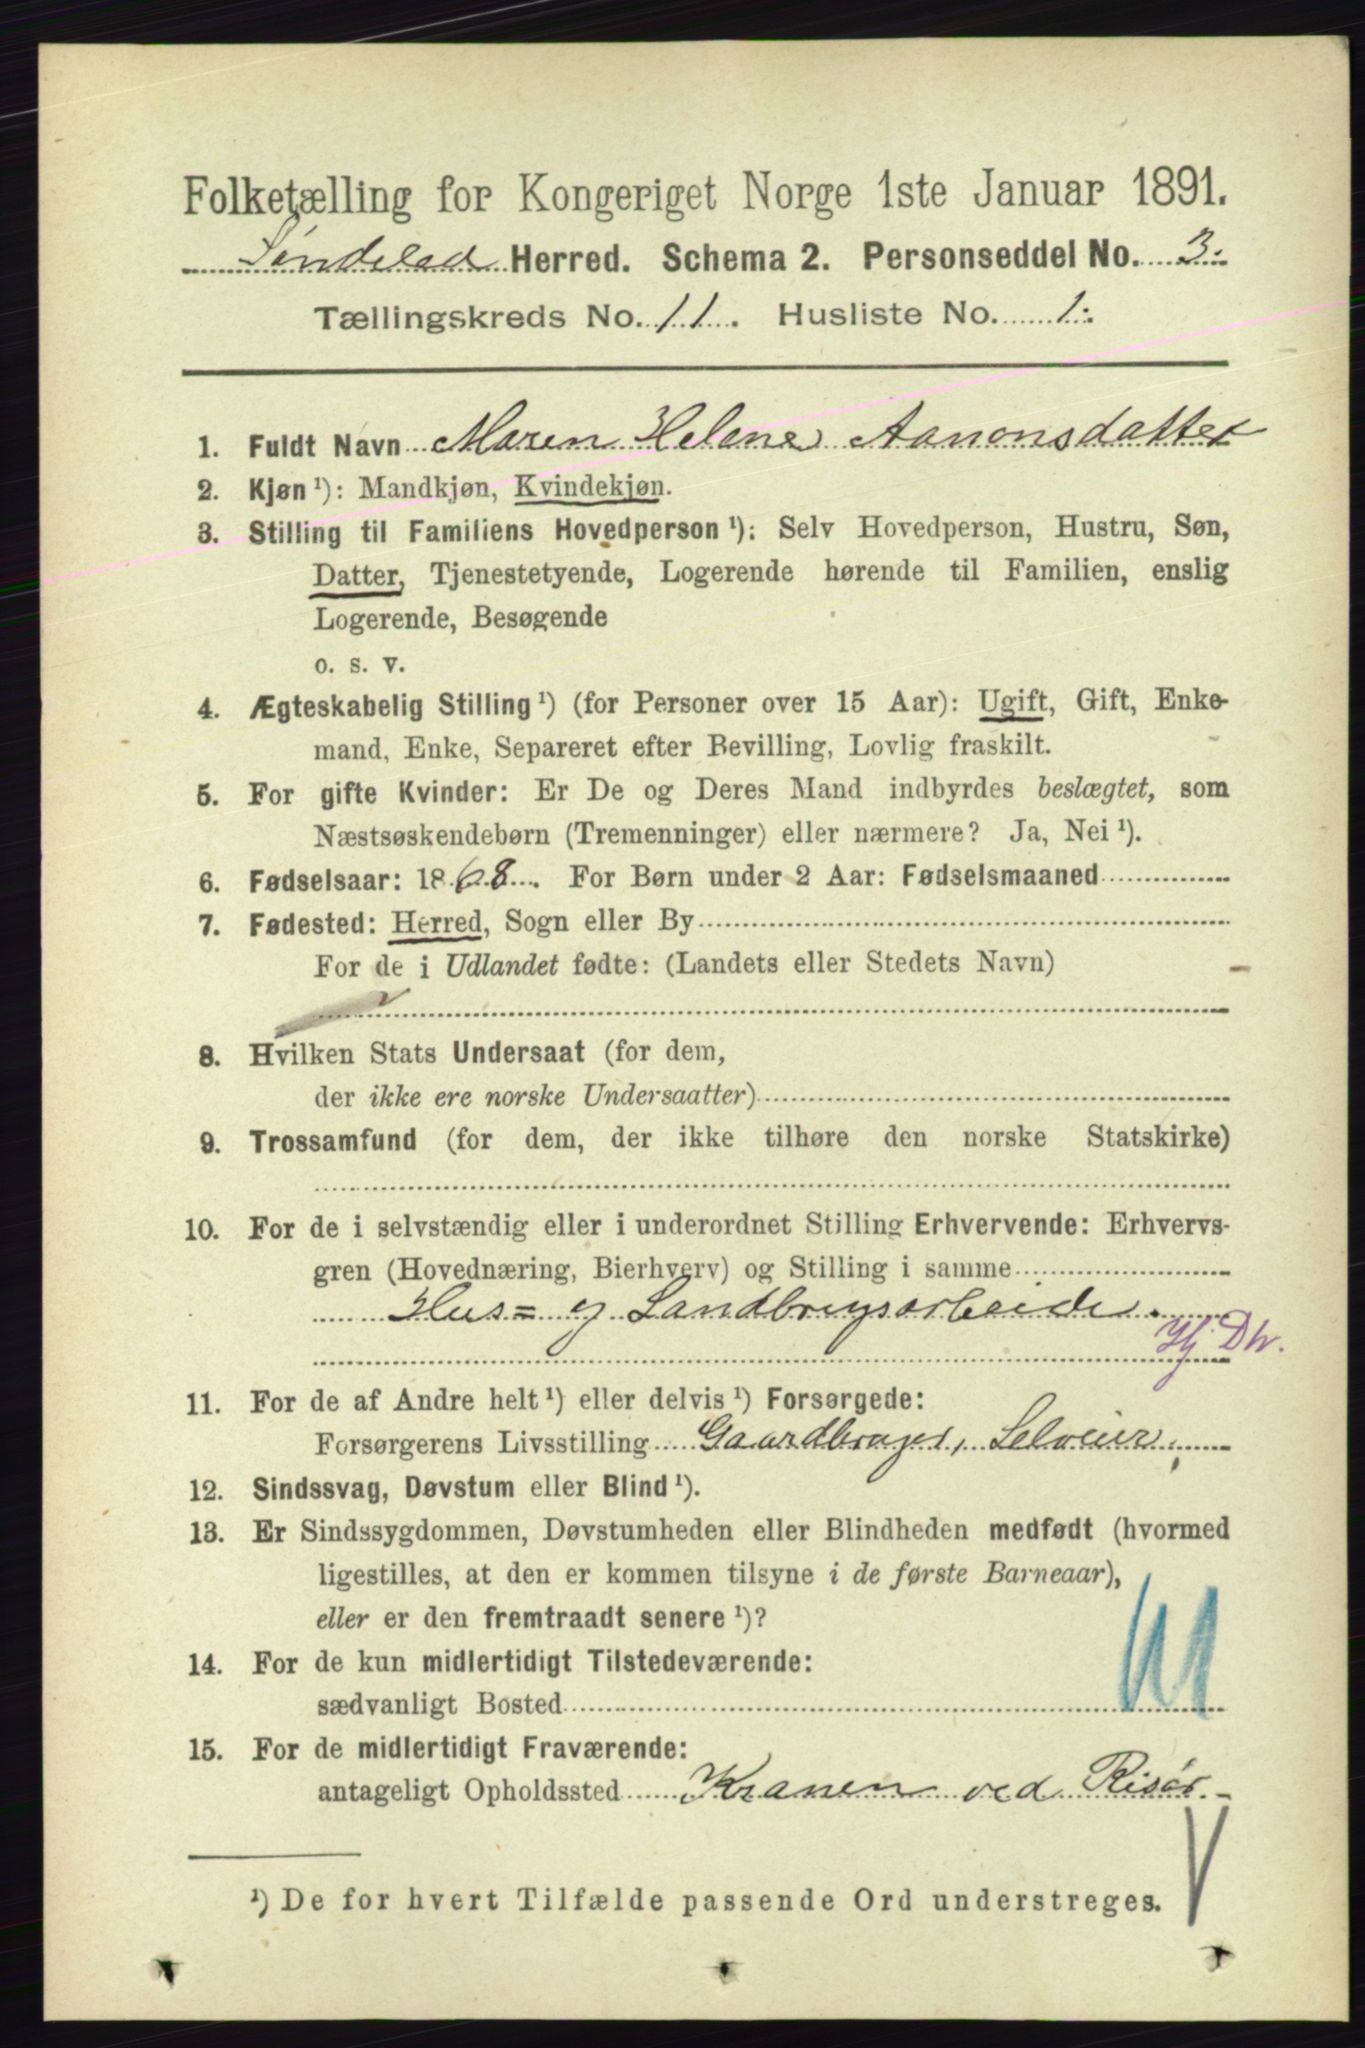 Folketælling for Kongeriget Norge 1ste Januar 1891.
Søndeled Herred. Schema 2. Personseddel No. 3.
Tællingskreds No. 11. Husliste No. 1.
1. Fuldt Navn Maren Helene Aanonsdatter
2. Kjøn ¹): Mandkjøn, Kvindekjøn.
3. Stilling til Familiens Hovedperson ¹): Selv Hovedperson, Hustru, Søn,
Datter, Tjenestetyende, Logerende hørende til Familien, enslig
Logerende, Besøgende
o. s. v.
4. Ægteskabelig Stilling ¹) (for Personer over 15 Aar): Ugift, Gift, Enke-
mand, Enke, Separeret efter Bevilling, Lovlig fraskilt.
5. For gifte Kvinder: Er De og Deres Mand indbyrdes beslægtet, som
Næstsøskendebørn (Tremenninger) eller nærmere? Ja, Nei ¹).
6. Fødselsaar: 1868. For Børn under 2 Aar: Fødselsmaaned
7. Fødested: Herred, Sogn eller By
For de i Udlandet fødte: (Landets eller Stedets Navn)
8. Hvilken Stats Undersaat (for dem,
der ikke ere norske Undersaatter)
9. Trossamfund (for dem, der ikke tilhøre den norske Statskirke)
10. For de i selvstændig eller i underordnet Stilling Erhvervende: Erhvervs-
gren (Hovednæring, Bierhverv) og Stilling i samme
Hus= og Landbrugsarbeide.
Hj. Dtr.
11. For de af Andre helt ¹) eller delvis ¹) Forsørgede:
Forsørgerens Livsstilling Gaardbruger, Selveier.
12. Sindssvag, Døvstum eller Blind ¹).
13. Er Sindssygdommen, Døvstumheden eller Blindheden medfødt (hvormed
ligestilles, at den er kommen tilsyne i de første Barneaar),
eller er den fremtraadt senere ¹)?
14. For de kun midlertidigt Tilstedeværende:
sædvanligt Bosted
15. For de midlertidigt Fraværende:
antageligt Opholdssted Kranen ved Risør.
¹) De for hvert Tilfælde passende Ord understreges.